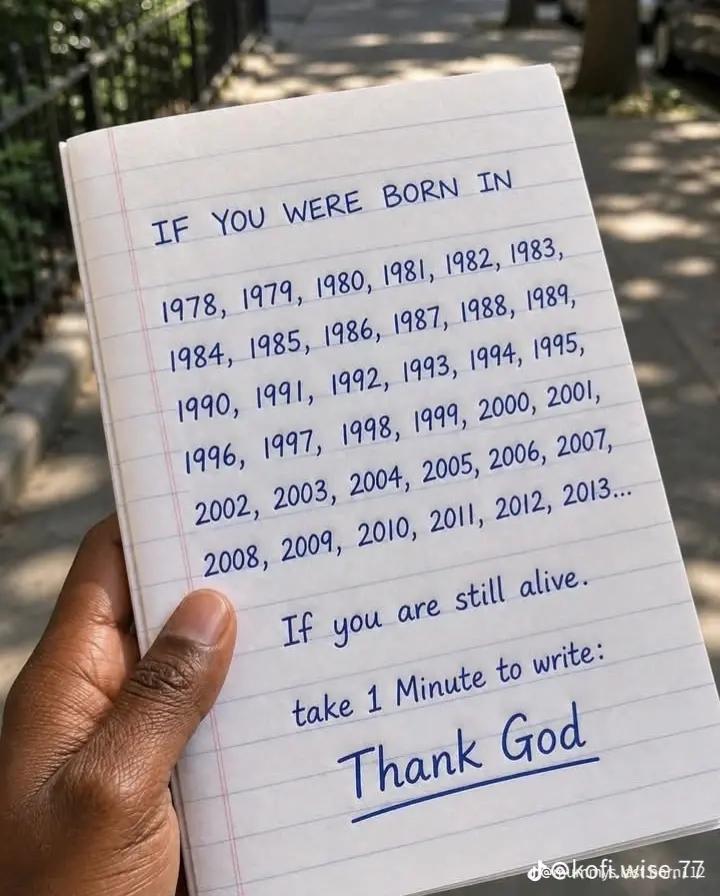 IF YOU WERE BORN IN
1978, 1979, 1980, 1981, 1982, 1983,
1984, 1985, 1986, 1987, 1988, 1989,
1990, 1991, 1992, 1993, 1994, 1995,
1996, 1997, 1998, 1999, 2000, 2001,
2002, 2003, 2004, 2005, 2006, 2007,
2008, 2009, 2010, 2011, 2012, 2013...
If you are still alive.
take 1 Minute to write:
Thank God
@kofi.wise.77